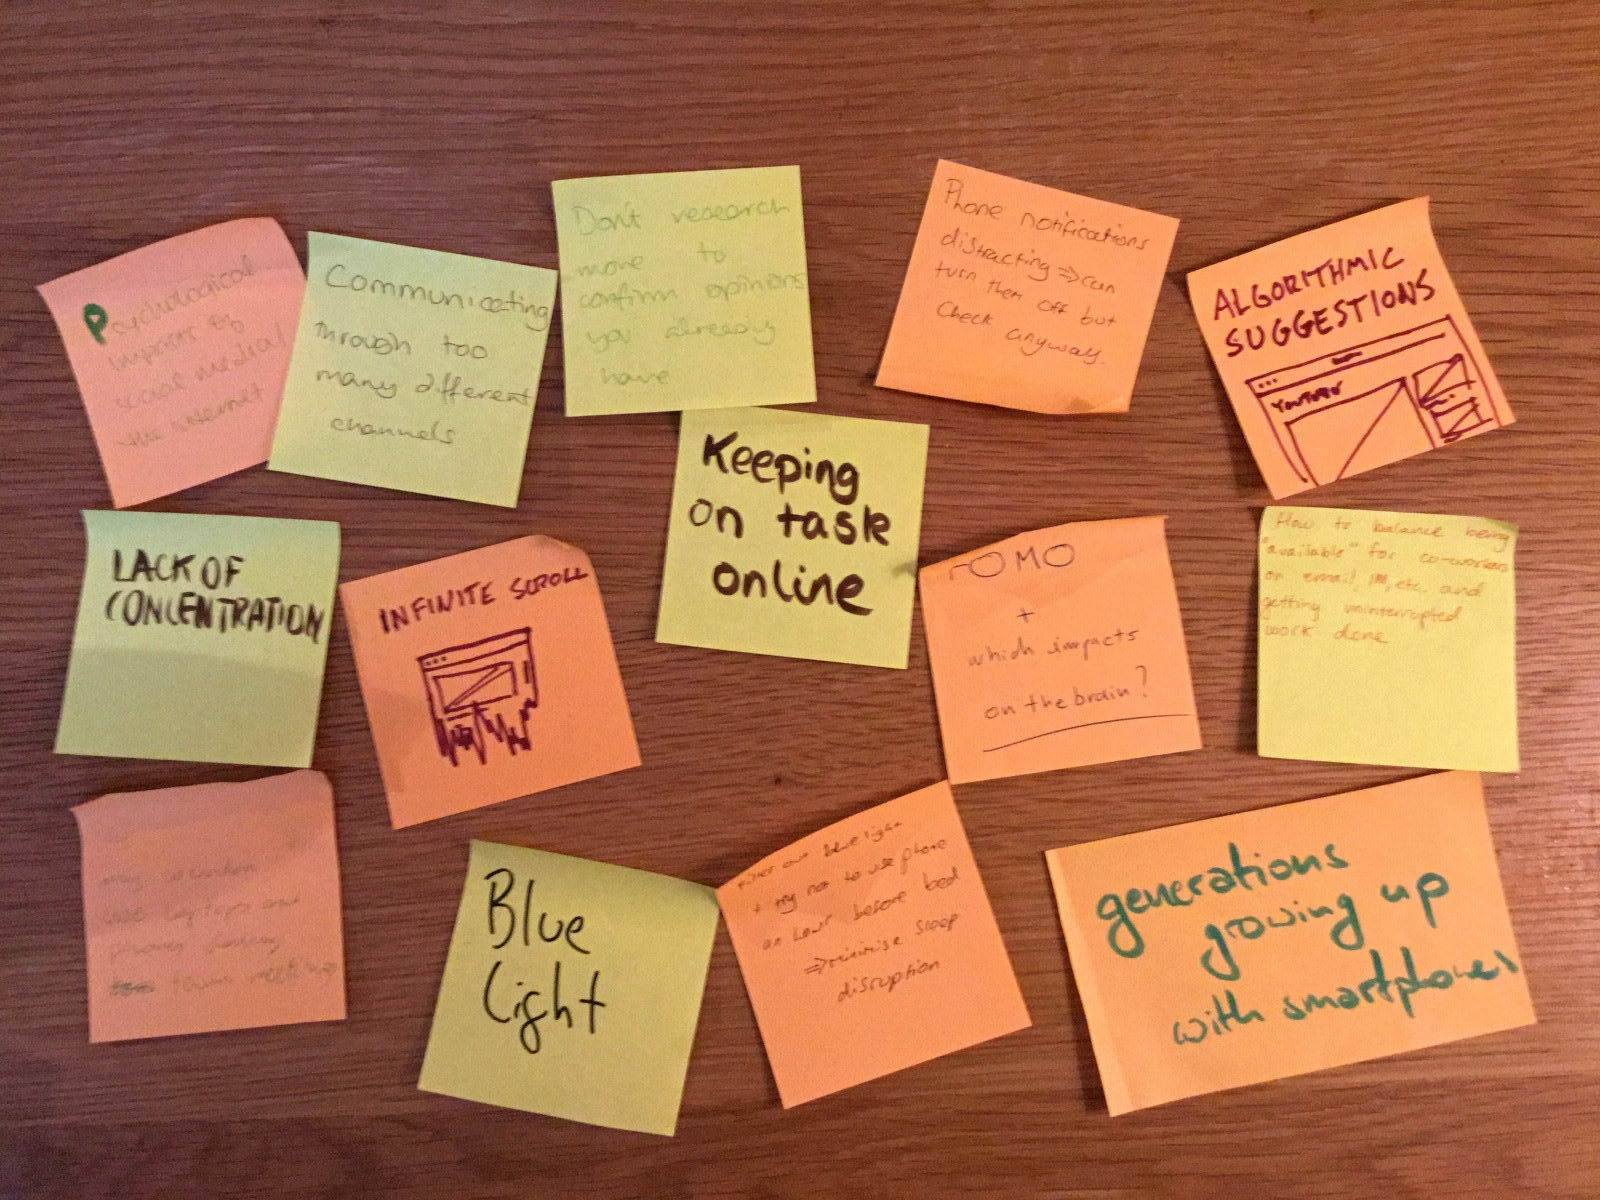 Psychological
impacts of
social media/
the internet
Communicating
through too
many different
channels
Don't research
more to
confirm opinions
you already
have
Phone notifications
distracting => can
turn them off but
check anyway.
ALGORITHMIC
SUGGESTIONS
YOUTUBE
LACK OF
CONCENTRATION
INFINITE SCROLL
Keeping
on task
online
FOMO
+
which impacts
on the brain?
How to balance being
"available" for co-workers
on email, IM, etc. and
getting uninterrupted
work done
use laptops and
phones during
team meetings
Blue
Light
Filter out blue light
+ try not to use phone
an hour before bed
=> minimise sleep
disruption
generations
growing up
with smartphones